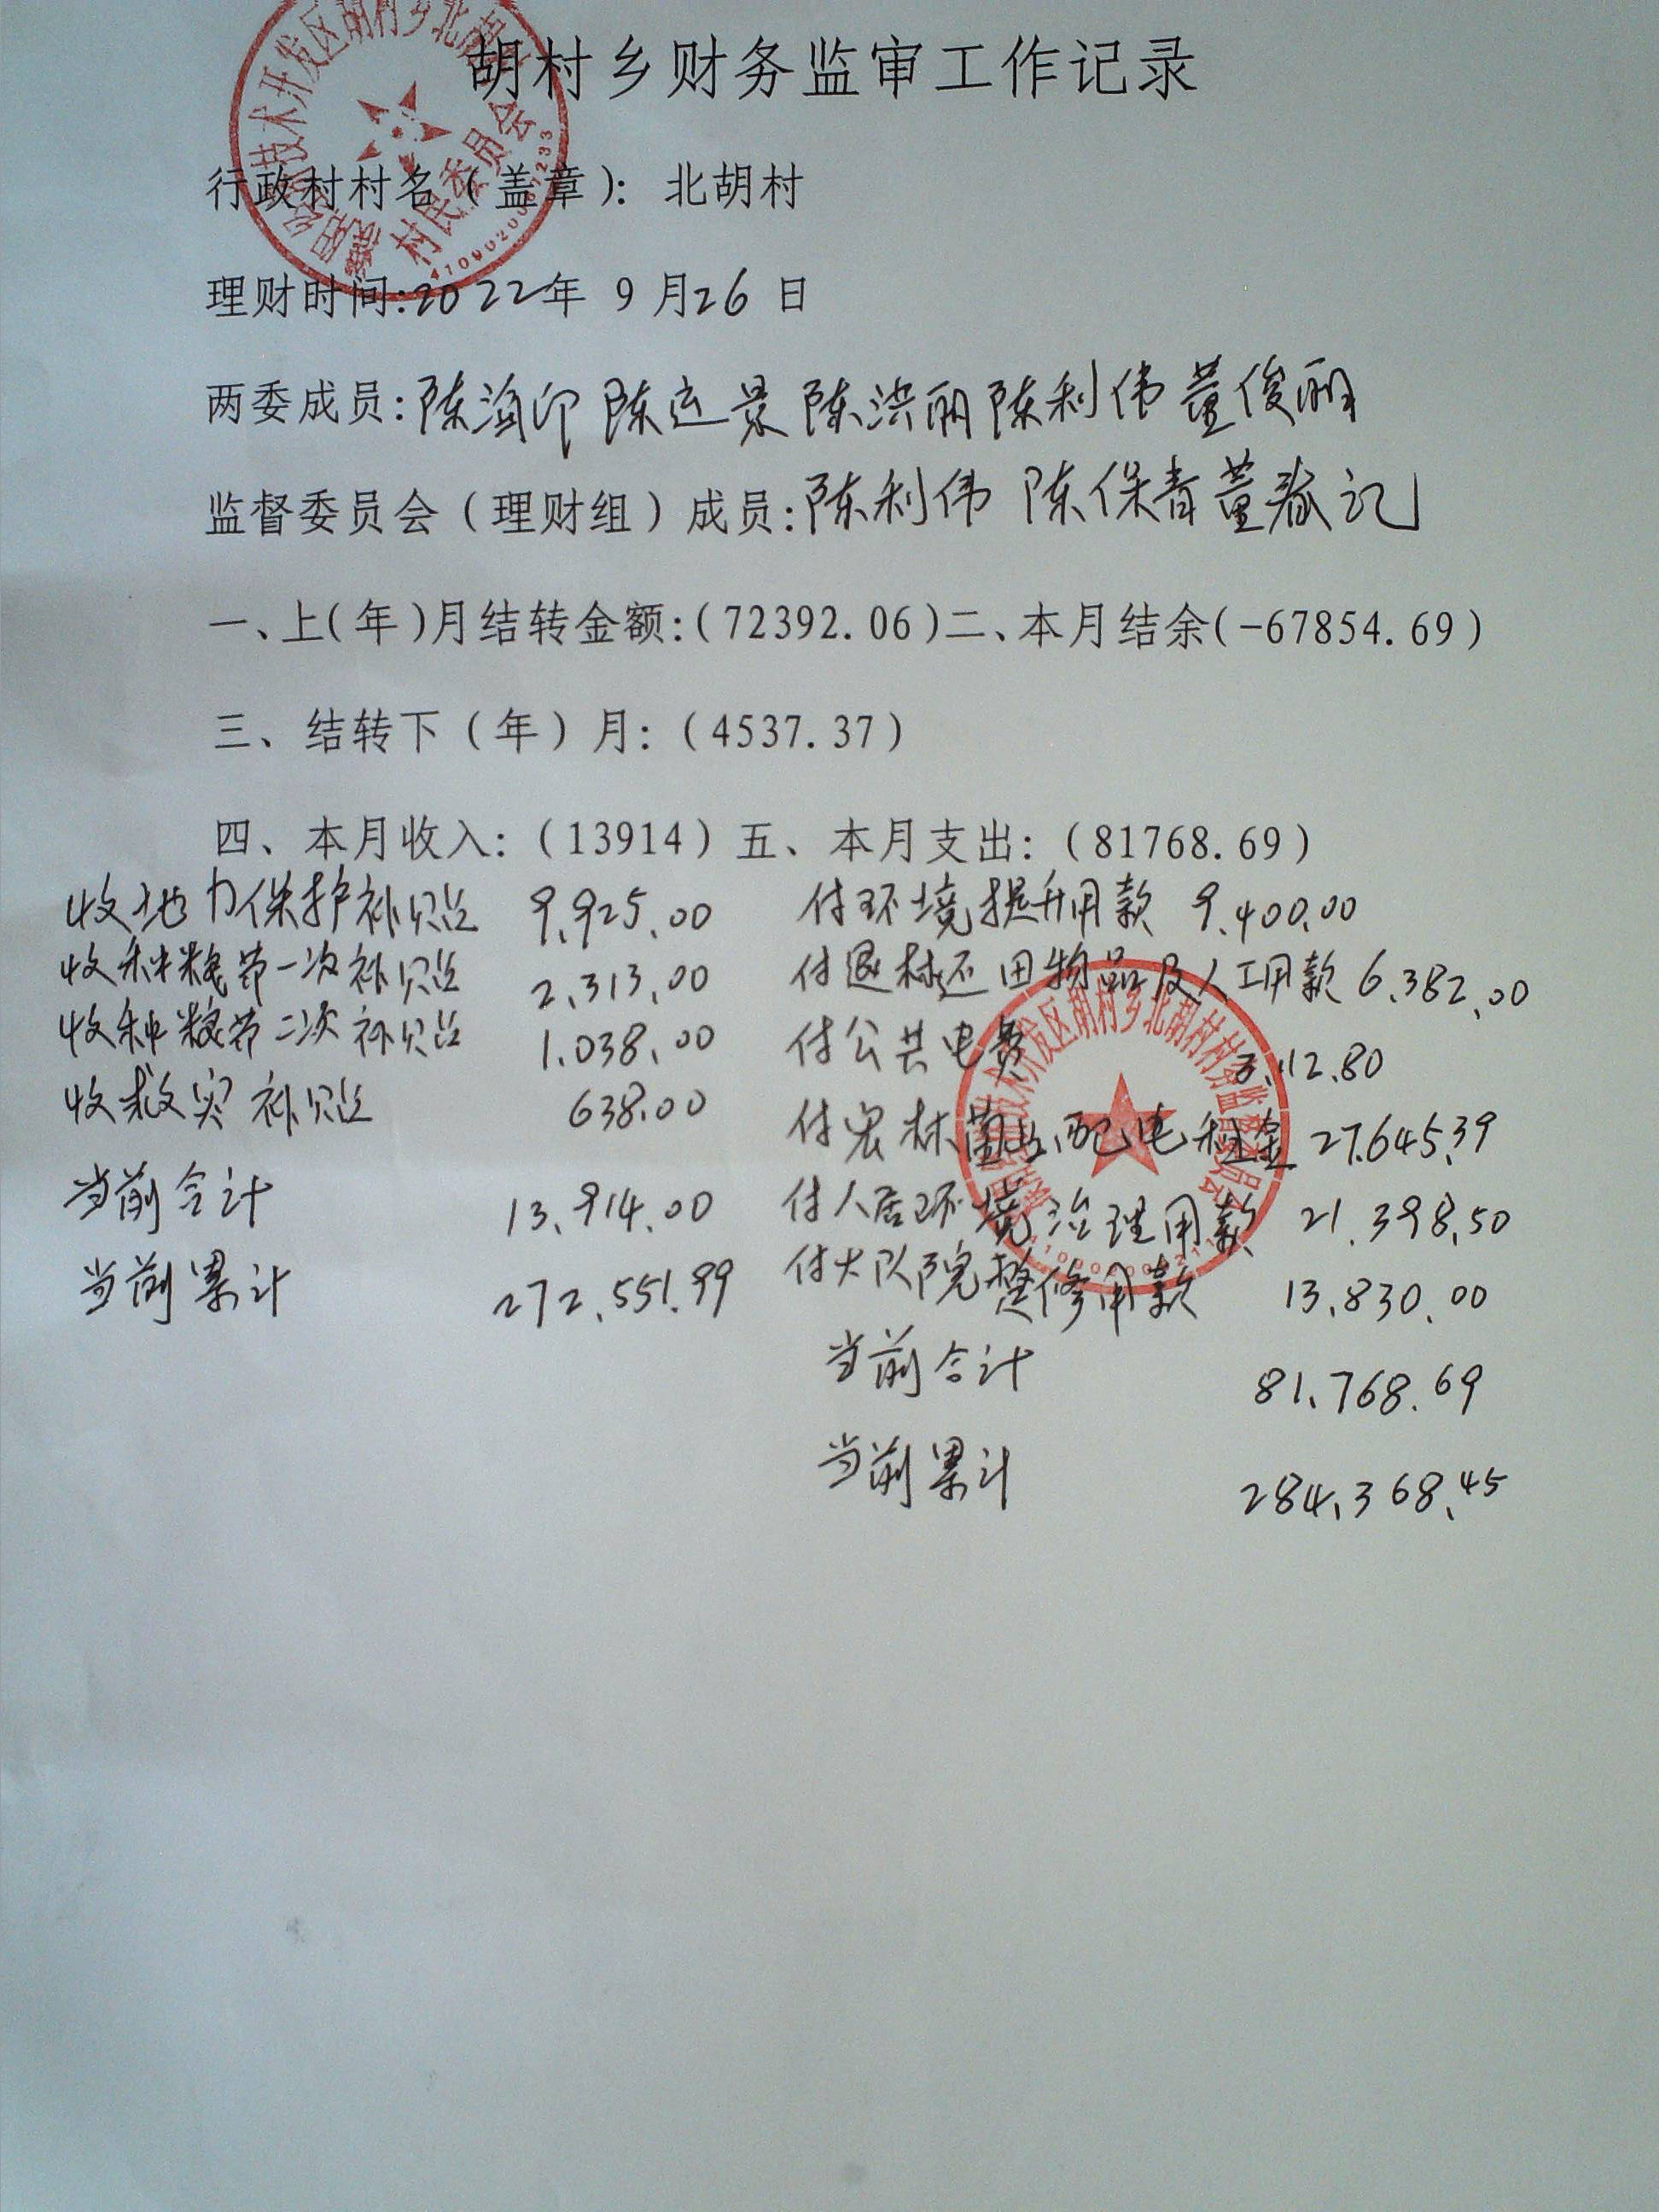 胡村乡财务监审工作记录
行政村村名（盖章）：北胡村
理财时间：2022年 9 月26 日
两委成员：陈海印 陈运景 陈洪丽 陈利伟 董俊丽
监督委员会（理财组）成员：陈利伟 陈保青 董记
一、上(年)月结转金额：(72392.06)二、本月结余(-67854.69)
三、结转下（年）月：（4537.37）
四、本月收入：（13914）五、本月支出：（81768.69）
收地力保护补贴 9,925.00 付环境提升用款 9,400.00
收种粮第一次补贴 2,313.00 付退林还田物品及人工用款 6,382.00
收种粮第二次补贴 1,038.00 付公共电费 3,112.80
收救灾补贴 638.00 付宏林配电租金 27,645.39
当前合计 13,914.00 付人居环境治理用款 21,398.50
当前累计 272,551.99 付大队院整修用款 13,830.00
当前合计 81,768.69
当前累计 284,368.45
技术开发区胡村乡北胡
村民委员会
开发区胡村乡北胡村村务监督委员会